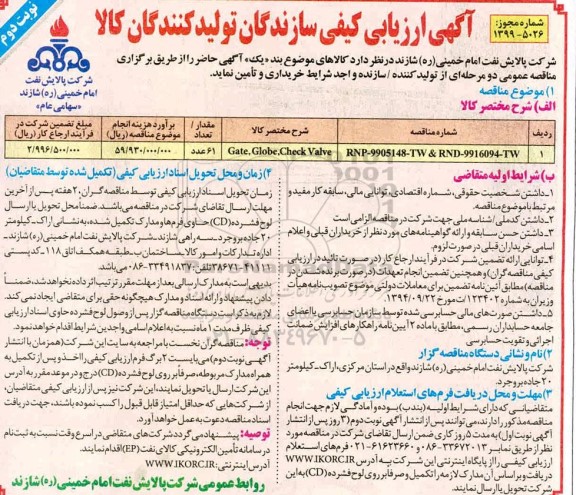 نوبت دوم
شماره مجوز:
۱۳۹۹-۵۰۲۶
آگهی ارزیابی کیفی سازندگان تولیدکنندگان کالا
شرکت پالایش نفت
امام خمینی (ره) شازند
«سهامی عام»
شرکت پالایش نفت امام خمینی (ره) شازند در نظر دارد کالاهای موضوع بند «یک» آگهی حاضر را از طریق برگزاری
مناقصه عمومی دو مرحله‌ای از تولیدکننده / سازنده واجد شرایط خریداری و تأمین نماید.
۱) موضوع مناقصه
الف) شرح مختصر کالا
ردیف
شماره مناقصه
شرح مختصر کالا
مقدار / تعداد
برآورد هزینه انجام موضوع مناقصه (ریال)
مبلغ تضمین شرکت در فرآیند ارجاع کار (ریال)
۱
RNP-9905148-TW & RND-9916094-TW
Gate, Globe, Check Valve
۶۱ عدد
۵۹/۹۳۰/۰۰۰/۰۰۰
۲/۹۹۶/۵۰۰/۰۰۰
ب) شرایط اولیه متقاضی
۱- داشتن شخصیت حقوقی، شماره اقتصادی، توانایی مالی، سابقه کار مفید و
مرتبط با موضوع مناقصه.
۲- داشتن کدملی/شناسه ملی جهت شرکت در مناقصه الزامی است.
۳- داشتن حسن سابقه و ارائه گواهینامه‌های مورد نظر از خریداران قبلی و اعلام
اسامی خریداران قبلی در صورت لزوم.
۴- توانایی ارائه تضمین شرکت در فرآیند ارجاع کار (در صورت تائید در ارزیابی
کیفی مناقصه‌گران) و همچنین تضمین انجام تعهدات (در صورت برنده شدن در
مناقصه) مطابق آئین نامه تضمین برای معاملات دولتی موضوع تصویب نامه هیأت
وزیران به شماره ۱۲۳۴۰۲/ت مورخ ۱۳۹۴/۰۹/۲۲
۵- داشتن صورت‌های مالی حسابرسی شده توسط سازمان حسابرسی یا اعضای
جامعه حسابداران رسمی، مطابق با ماده ۲ آیین نامه راهکارهای افزایش ضمانت
اجرائی و تقویت حسابرسی
۲) نام و نشانی دستگاه مناقصه گزار
شرکت پالایش نفت امام خمینی (ره) شازند واقع در استان مرکزی، اراک-کیلومتر
۲۰ جاده بروجرد.
۳) مهلت و محل دریافت فرم‌های استعلام ارزیابی کیفی
متقاضیانی که دارای شرایط اولیه (بند ب) بوده و آمادگی لازم جهت انجام
مناقصه مذکور را دارند، می‌توانند پس از انتشار آگهی نوبت دوم (۳ روز پس از انتشار
آگهی نوبت اول) به مدت ۵ روز کاری ضمن ارسال تقاضای شرکت در مناقصه مورد
نظر از طریق نمابر ۳۳۶۷۲۰۱۳-۰۸۶ و ۶۱۶۲۳۶۶۰-۰۲۱ فرم‌های استعلام
ارزیابی کیفی را از پایگاه اینترنتی این شرکت به آدرس WWW.IKORC.IR
دریافت و براساس آن مدارک لازمه را تکمیل و صرفاً بر روی لوح فشرده (CD) به این
شرکت تحویل یا ارسال نمایند.
۴) زمان و محل تحویل اسناد ارزیابی کیفی (تکمیل شده توسط متقاضیان)
زمان تحویل اسناد ارزیابی کیفی توسط مناقصه گران، ۲۰ هفته پس از آخرین
مهلت ارسال تقاضای شرکت در مناقصه می‌باشد. ضمناً محل تحویل یا ارسال
لوح فشرده (CD) حاوی فرم‌ها و مدارک تکمیل شده، به نشانی اراک-کیلومتر
۲۰ جاده بروجرد-سه راهی شازند-شرکت پالایش نفت امام خمینی (ره) شازند-
اداره تدارکات و امور کالا، ساختمان ب-طبقه همکف-اتاق ۱۱۸-کد پستی
۳۳۴۹۱۸۳۷-۰۸۶ می‌باشد.
بدیهی است به مدارک ارسالی بعد از مهلت مقرر ترتیب اثر داده نخواهد شد، ضمناً
دادن پیشنهاد و ارائه اسناد و مدارک هیچگونه حقی برای متقاضی ایجاد نمی‌کند.
لازم به ذکر است دستگاه مناقصه گزار پس از وصول لوح فشرده حاوی اسناد ارزیابی
کیفی ظرف مدت ۱ ماه نسبت به اعلام اسامی واجدین شرایط اقدام خواهد نمود.
توجه: مناقصه گران نخست با مراجعه به سایت این شرکت (همزمان با انتشار
آگهی نوبت دوم) می‌بایست ۲ برگ فرم ارزیابی کیفی را اخذ و پس از تکمیل به
همراه مدارک مربوطه، صرفاً بر روی لوح فشرده (CD) درج و در موعد مقرر به آدرس
این شرکت ارسال یا تحویل نمایند، این شرکت نیز پس از ارزیابی کیفی متقاضیان،
از شرکت‌هایی که حداقل امتیاز قابل قبول را کسب نموده باشند، جهت دریافت
اسناد مناقصه دعوت به عمل خواهد آورد.
توصیه: پیشنهاد می‌گردد شرکت‌های متقاضی در اسرع وقت نسبت به ثبت نام
در سامانه تأمین الکترونیکی کالای نفت (EP) اقدام نمایند.
آدرس اینترنتی: WWW.IKORC.IR
روابط عمومی شرکت پالایش نفت امام خمینی (ره) شازند